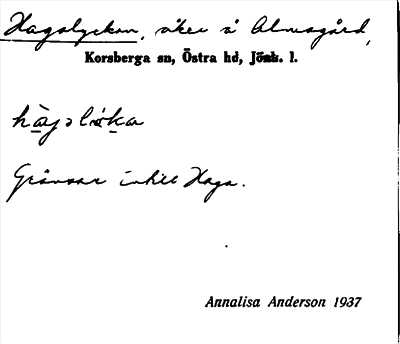 Hagalyckan, åker å Almsgård,
Korsberga sn, Östra hd, Jönk. l.
Gränsar intill Haga.
Annalisa Anderson 1937